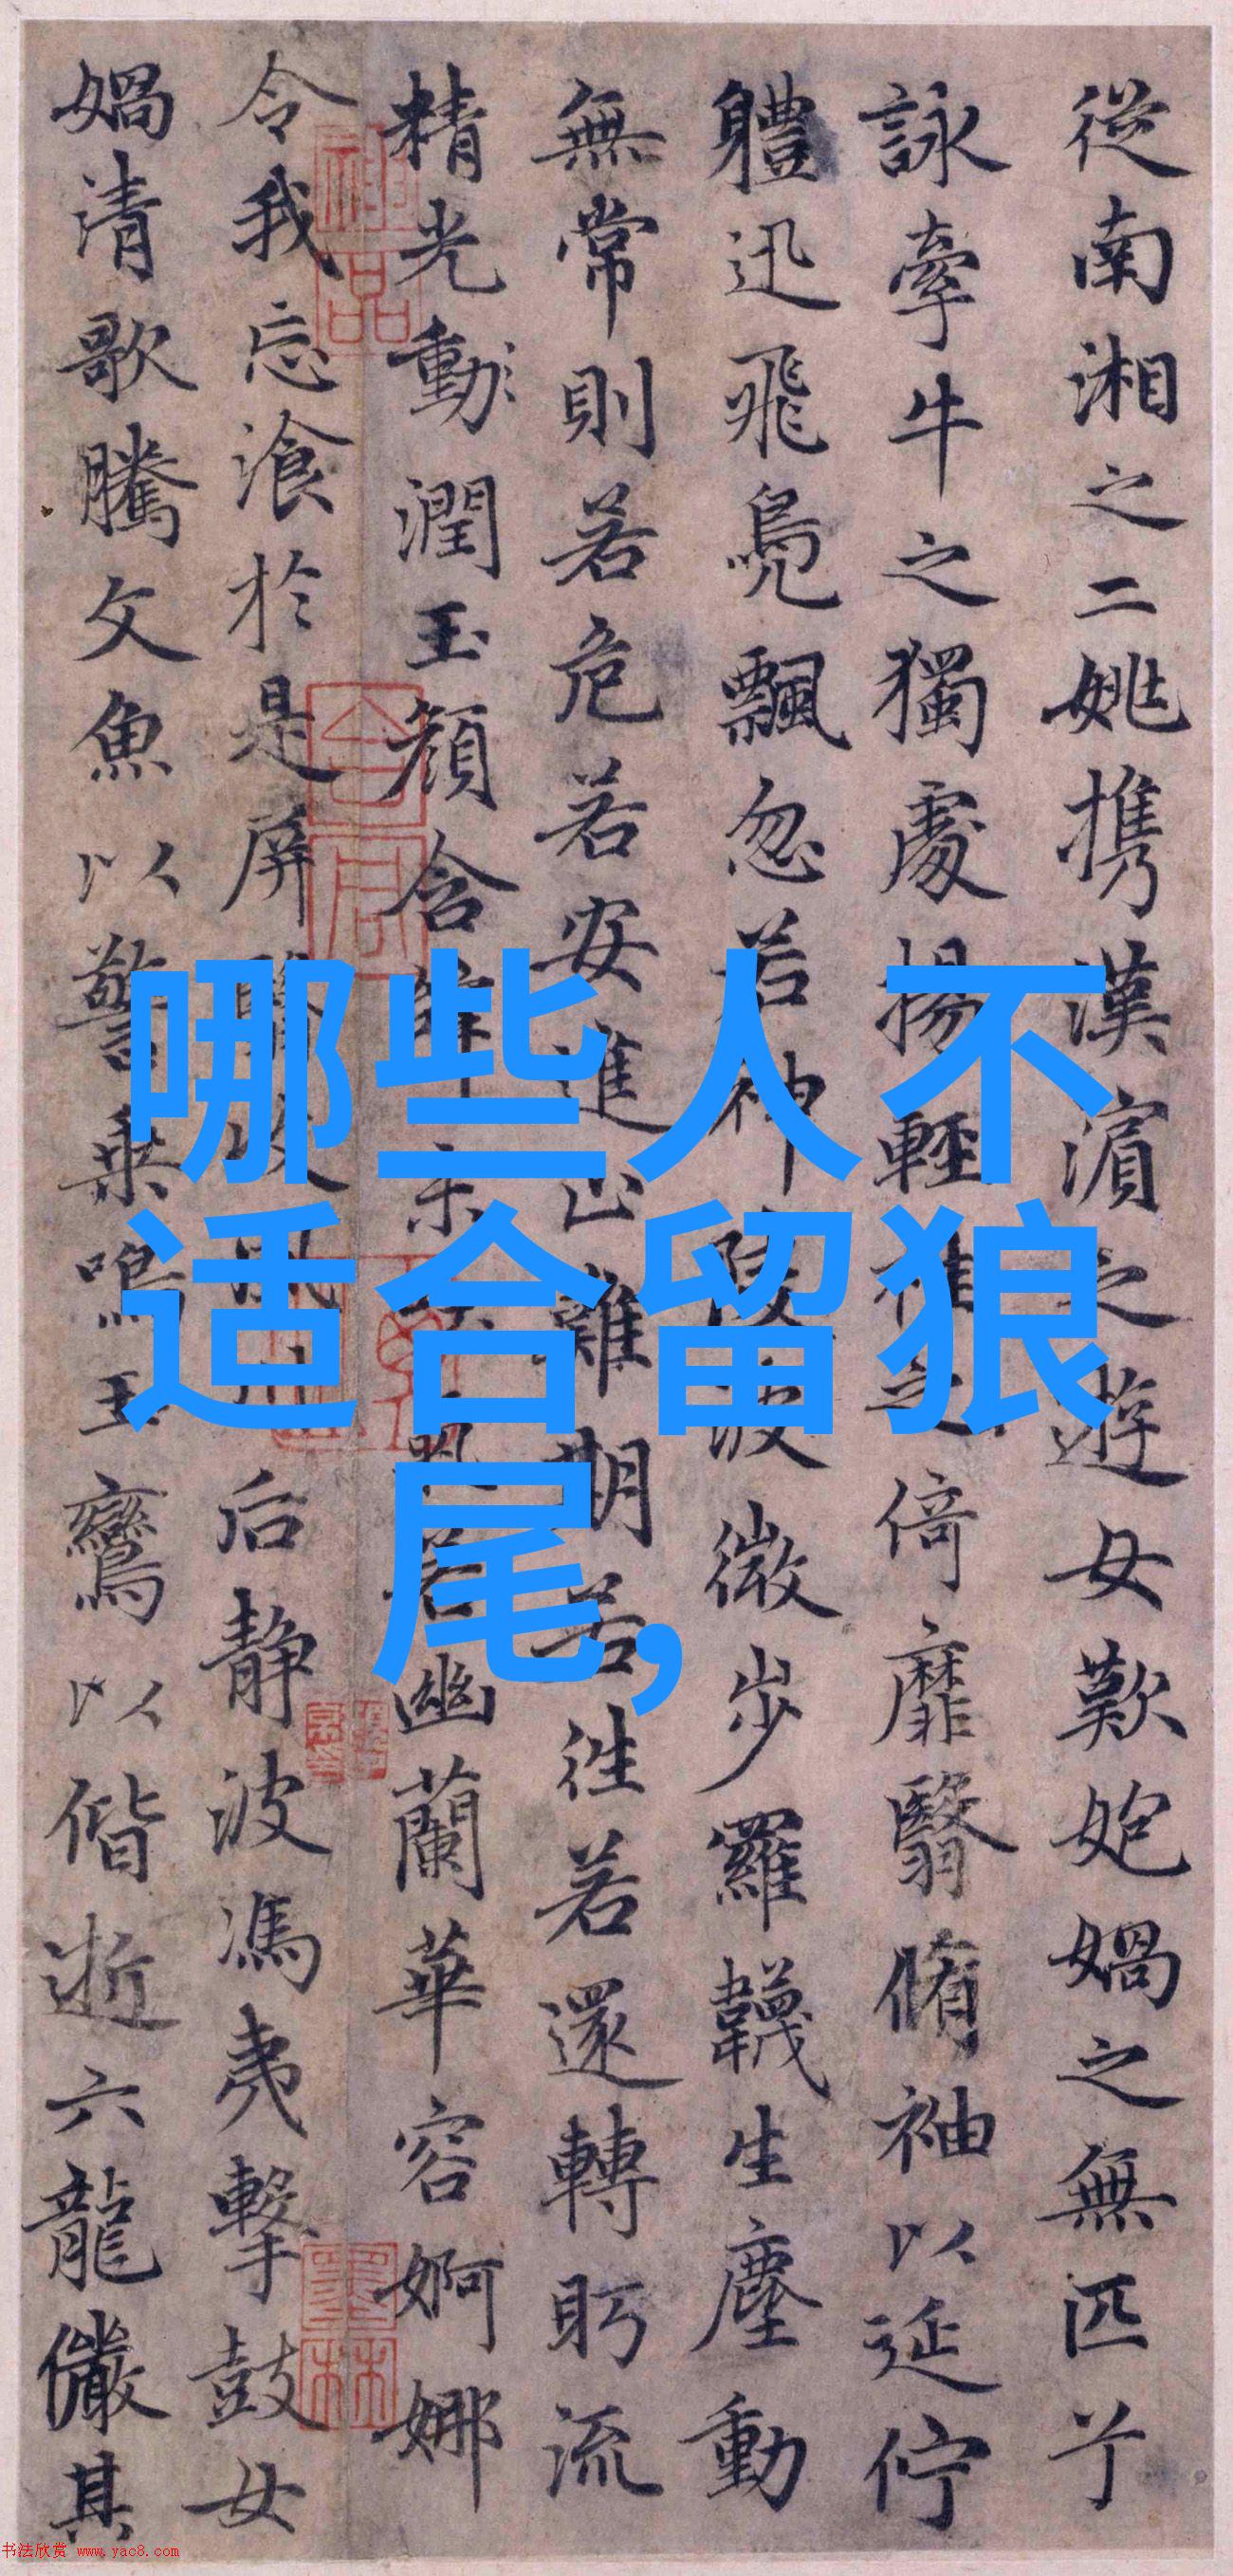 從南湘之二姚携漢濵之遊女歎匏媧之無匹兮
詠牽牛之獨處揚輕袿之倚靡翳脩袖以延佇
軆迅飛鳧飄忽若神陵波微步羅韈生塵動
無常則若危若安進止難期若往若還轉眄流
精光動潤玉顔含辭未吐氣若幽蘭華容婀娜
令我忘飡於是屏翳收風川后静波馮夷擊鼓女
媧清歌騰文魚以警乗鳴玉鸞以偕逝六龍儼其
神品
墨林
哪些人不
适合留狼
尾,
书法欣赏 www.yac8.com